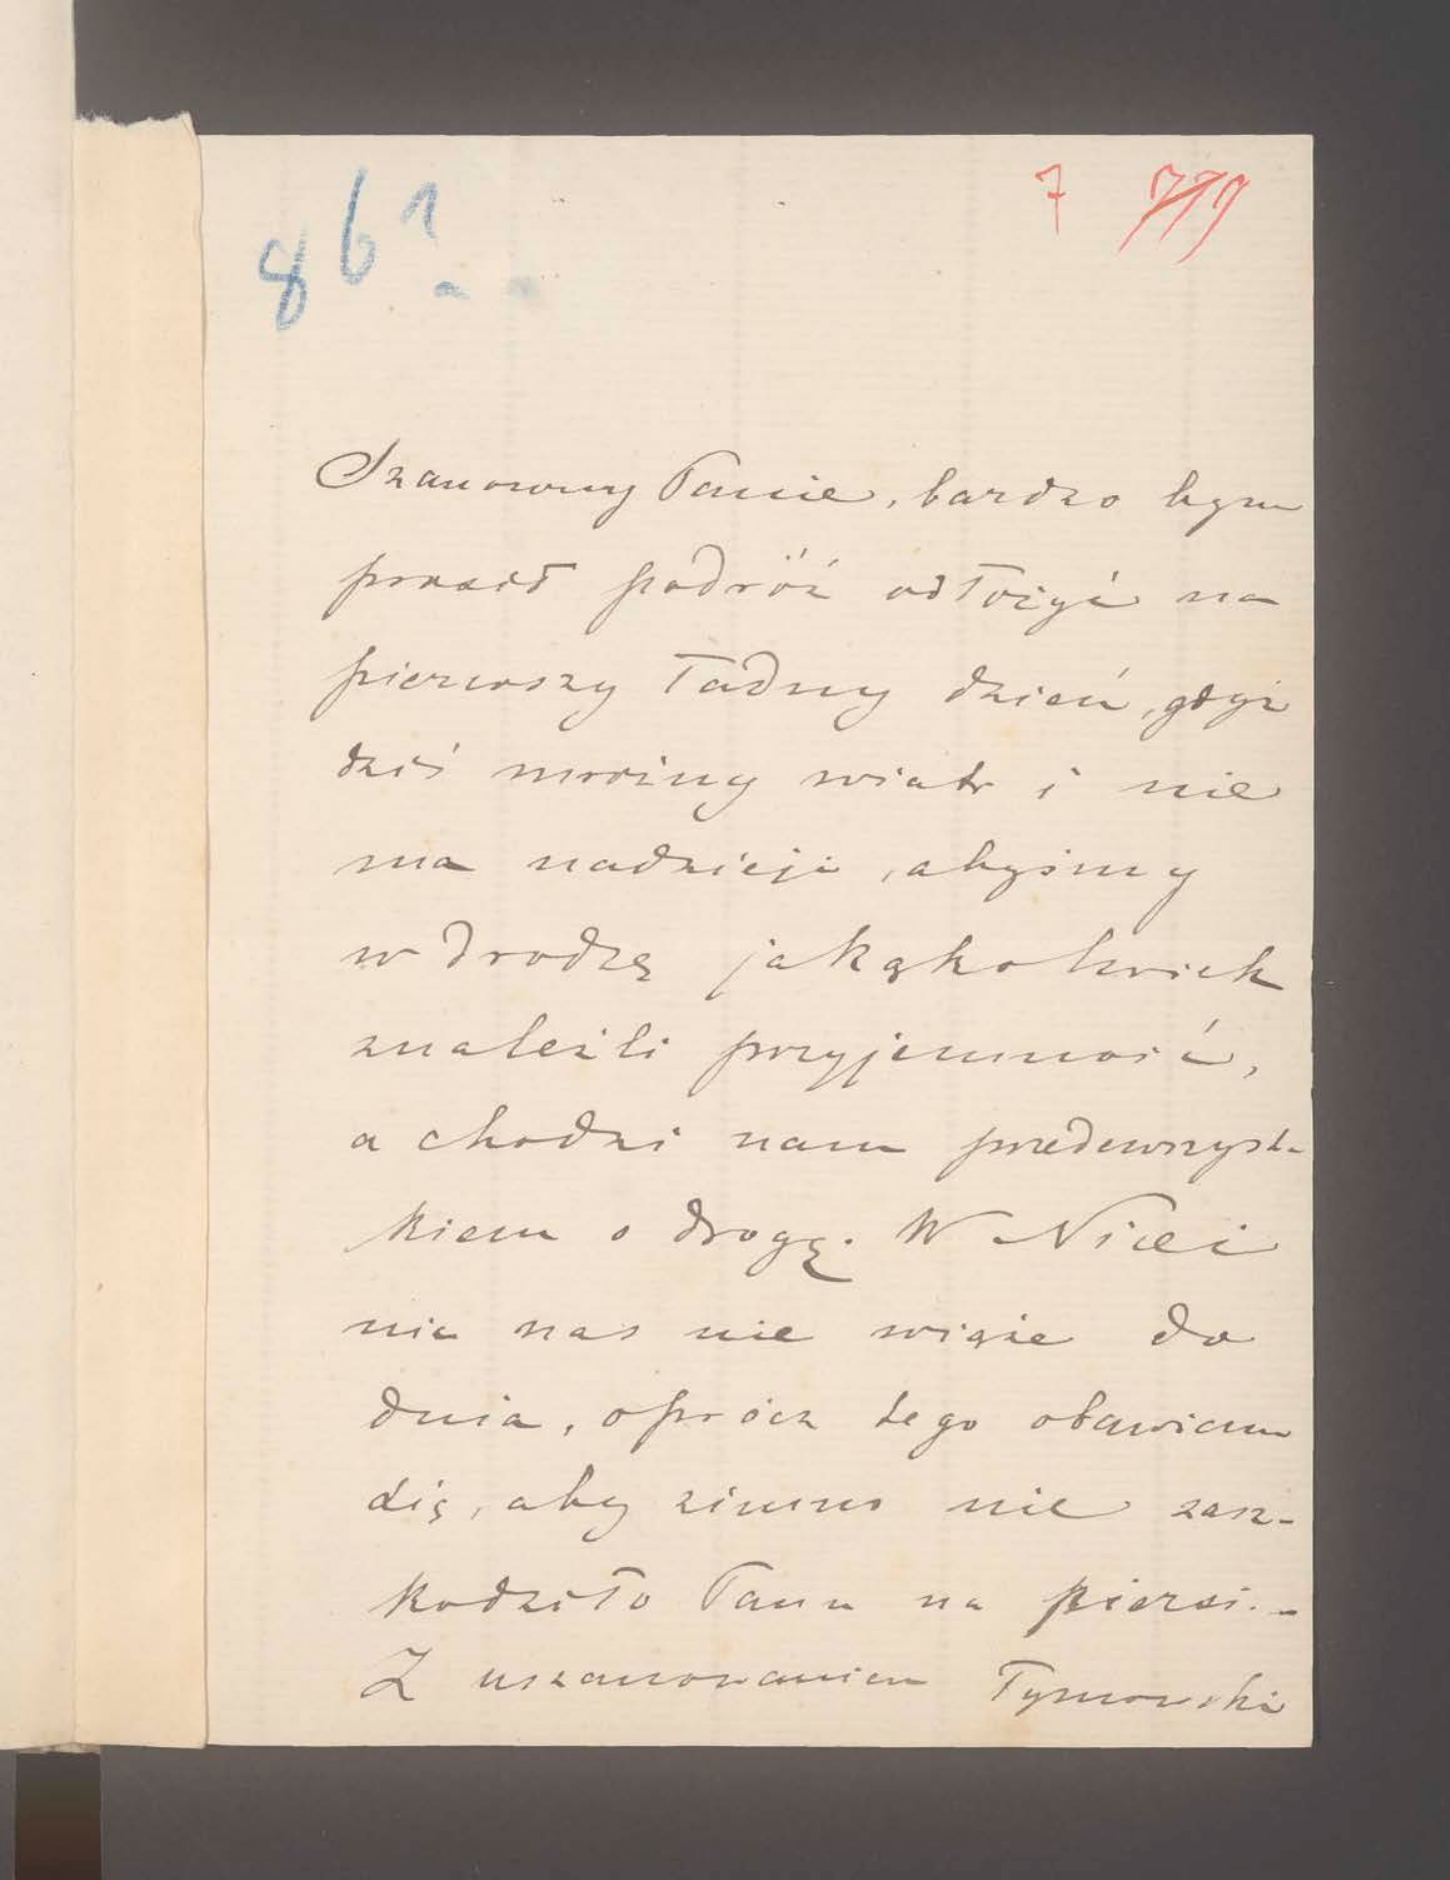 861
7 779
Szanowny Panie, bardzo bym
prosił podróż odłożyć na
pierwszy ładny dzień, gdyż
dziś mroźny wiatr i nie
ma nadzieji, abyśmy
w drodzę jakąkolwiek
znaleźli przyjemność,
a chodzi nam przedewszyst-
kiem o drogę. W Nicei
nic nas nie wiąże do
dnia, oprócz tego obawiam
się, aby zimno nie zasz-
kodziło Panu na piersi. -
Z uszanowaniem Tymowski